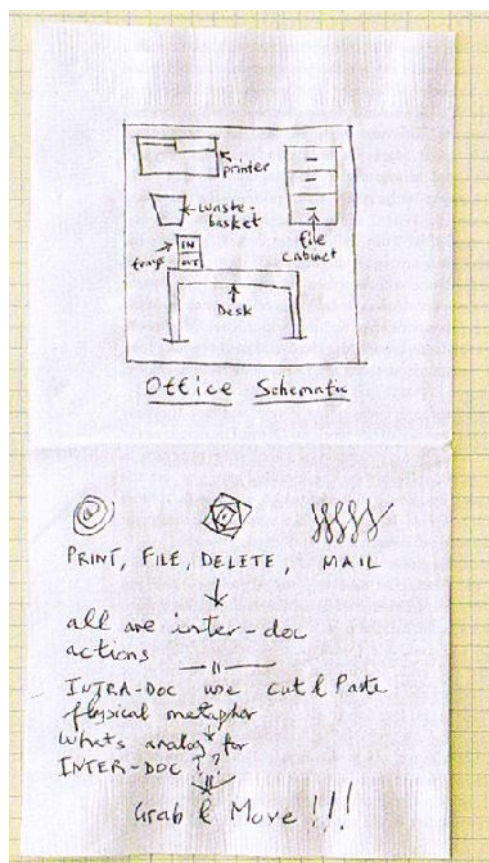 printer
waste-
basket
IN
tray
file
cabinet
Desk
Office Schematic
PRINT, FILE, DELETE, MAIL
all are inter-doc
actions
INTRA-DOC use cut & Paste
physical metaphor
whats analog for
INTER-DOC ??
Grab & Move !!!